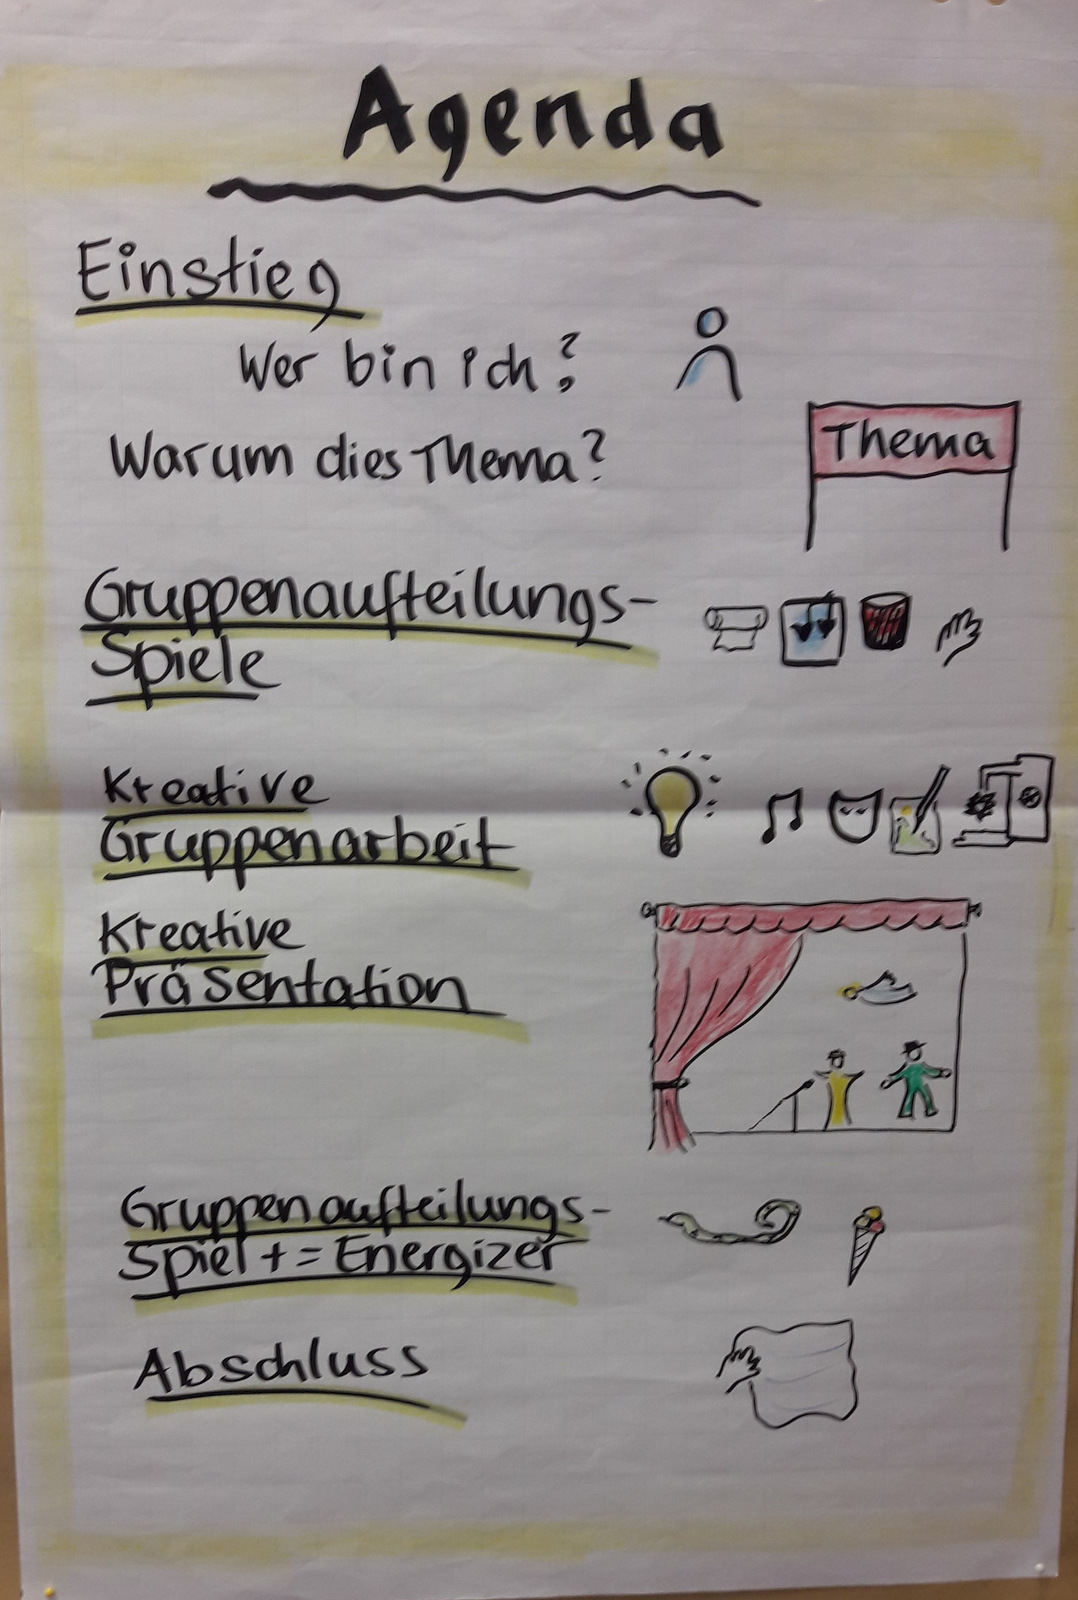 Agenda
Einstieg
Wer bin ich?
Warum dies Thema?
Thema
Gruppenaufteilungs-
Spiele
Kreative
Gruppenarbeit
Kreative
Präsentation
Gruppenaufteilungs-
Spiel + = Energizer
Abschluss